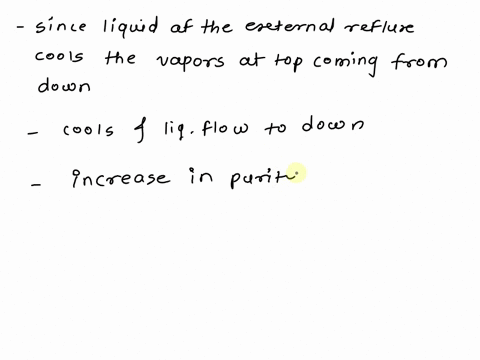 - since liquid of the external reflux
cools the vapors at top coming from
down
- cools & liq. flow to down
- increase in purit